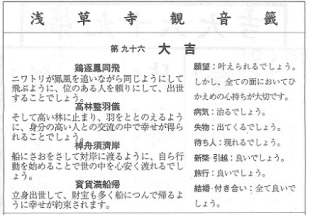 浅草寺観音籤
第九十六 大吉
鶏逐鳳同飛
ニワトリが鳳凰を追いながら同じようにして
飛ぶように、位のある人を頼りにして、出世
することでしょう。
高林整羽儀
そして高い林に止まり、羽をととのえるよう
に、身分の高い人との交流の中で幸せが得ら
れることでしょう。
棹舟須済岸
船にさおをさして対岸に渡るように、自ら行
動を始めることで世の中を心安く渡れるでし
ょう。
宝貨満船帰
立身出世して、財宝も多く船につんで帰るよ
うに幸せが約束されます。
願望:叶えられるでしょう。
しかし、全ての面においてひ
かえめの心持ちが大切です。
病気:治るでしょう。
失物:出てくるでしょう。
待ち人:現れるでしょう。
新築・引越:良いでしょう。
旅行:良いでしょう。
結婚・付き合い:全て良いで
しょう。